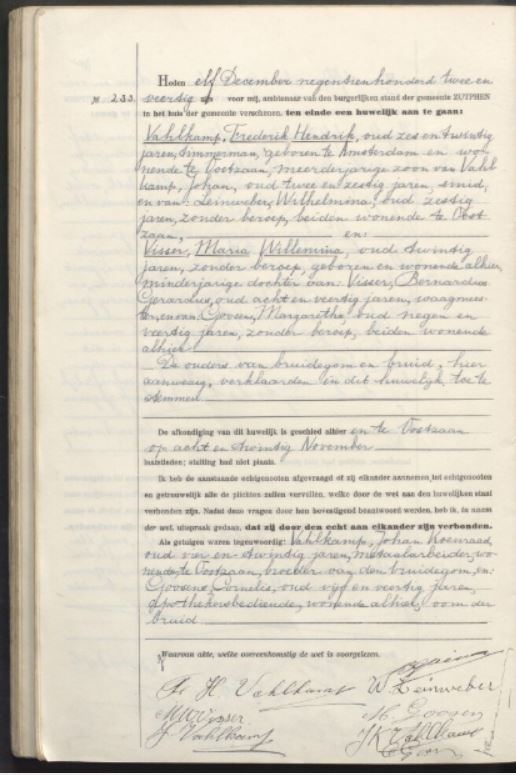 Heden elf December negentienhonderd twee en
№ 233. veertig zijn voor mij, ambtenaar van den burgerlijken stand der gemeente ZUTPHEN
in het huis der gemeente verschenen, ten einde een huwelijk aan te gaan:
Vahlkamp, Frederik Hendrik, oud zes en twintig
jaren, timmerman, geboren te Amsterdam en wo-
nende te Oostzaan, meerderjarige zoon van Vahl
kamp, Johan, oud twee en zestig jaren, smid,
en van: Leinweber, Wilhelmina, oud zestig
jaren, zonder beroep, beiden wonende te Oost
zaan, en:
Visser, Maria Willemina, oud twintig
jaren, zonder beroep, geboren en wonende alhier,
minderjarige dochter van: Visser, Bernardus
Gerardus, oud acht en veertig jaren, waagmees-
ter, en van: Goosens, Margaretha, oud negen en
veertig jaren, zonder beroep, beiden wonende
alhier.
De ouders van bruidegom en bruid, hier
aanwezig, verklaarden in dit huwelijk toe te
stemmen.
De afkondiging van dit huwelijk is geschied alhier en te Oostzaan
op acht en twintig November
laatstleden; stuiting had niet plaats.
Ik heb de aanstaande echtgenooten afgevraagd of zij elkander aannemen tot echtgenooten
en getrouwelijk alle de plichten zullen vervullen, welke door de wet aan den huwelijken staat
verbonden zijn. Nadat deze vragen door hen bevestigend beantwoord werden, heb ik, in naam
der wet, uitspraak gedaan, dat zij door den echt aan elkander zijn verbonden.
Als getuigen waren tegenwoordig: Vahlkamp, Johan Koenraad,
oud vier en twintig jaren, metaalarbeider, wo-
nende te Oostzaan, broeder van den bruidegom, en:
Goosens, Cornelis, oud vijf en veertig jaren,
apothekersbediende, wonende alhier, oom der
bruid
Waarvan akte, welke overeenkomstig de wet is voorgelezen.
Fr. H. Vahlkamp W. Leinweber
M W Visser M. Goosen
J. Vahlkamp J K Vahlkamp